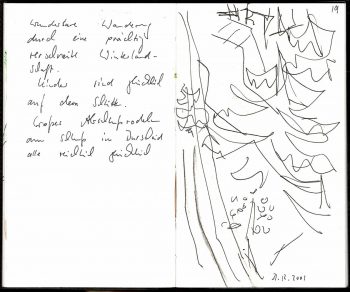 wunderbare Wanderung
durch eine prächtig
verschneite Winterland-
schaft.
Kinder sind glücklich
auf dem Schlitten
Grosses Abschlussrodeln
am
alle reichlich glücklich
19
21.12.2001